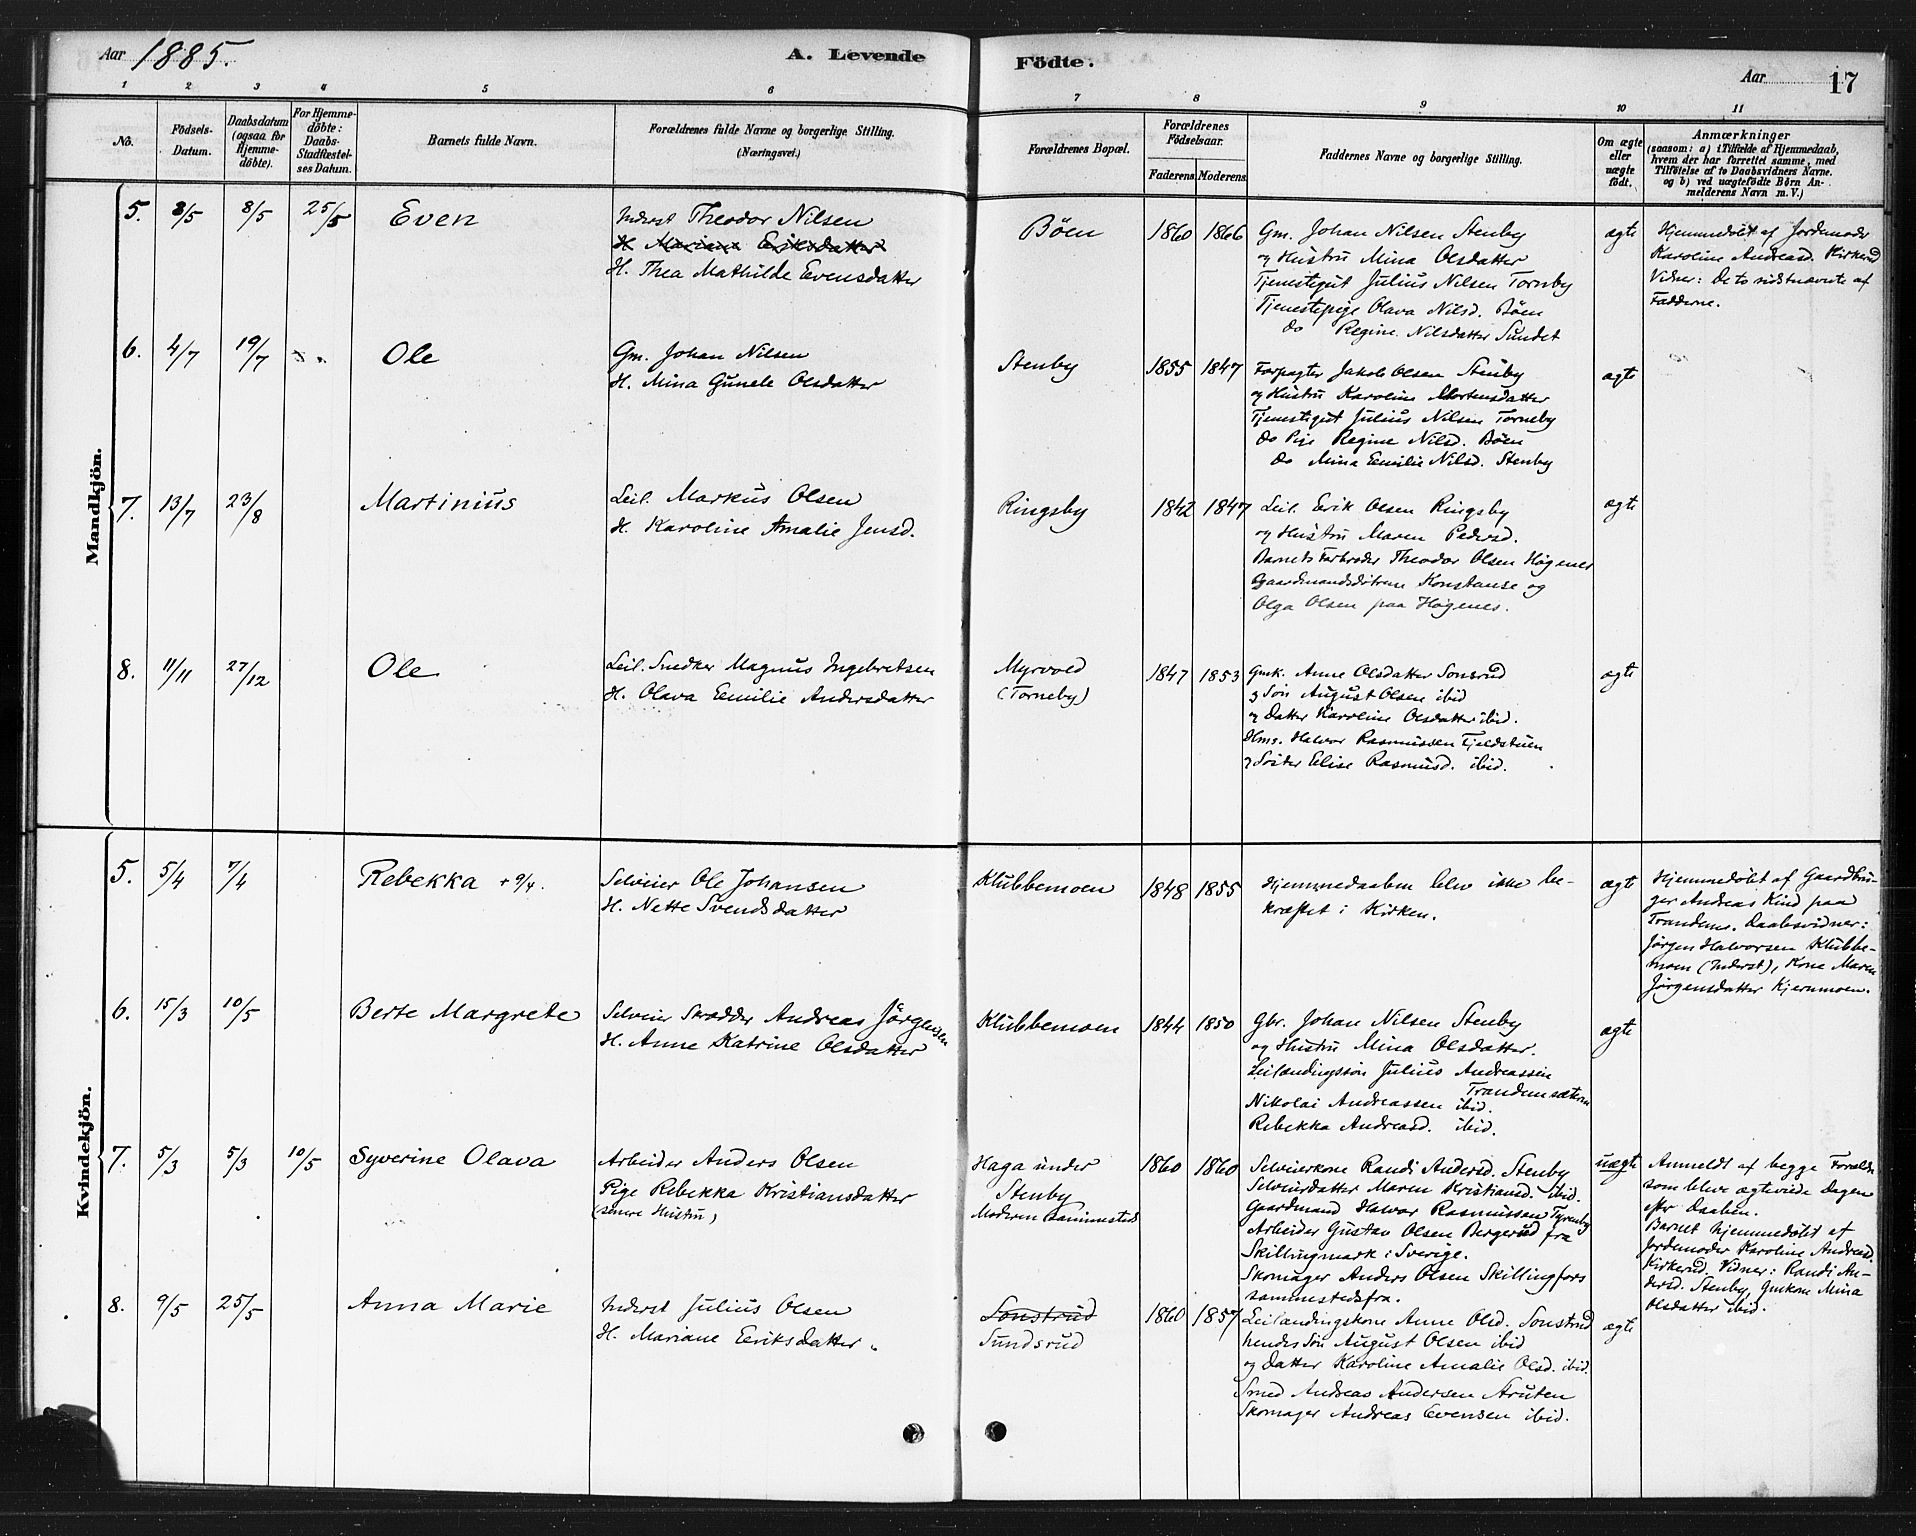 Aar 1885.
A. Levende Födte.
Aar 17
1 2 3 4 5 6 7 8 9 10 11
No.
Födsels-
Datum.
Daabsdatum
(ogsaa for
Hjemme-
döbte).
For Hjemme-
döbte:
Daabs-
Stadfæstel-
ses Datum.
Barnets fulde Navn.
Forældrenes fulde Navne og borgerlige Stilling.
(Næringsvei.)
Forældrenes Bopæl.
Forældrenes
Födselsaar.
Faderens
Moderens
Faddernes Navne og borgerlige Stilling.
Om ægte
eller
uægte
födt.
Anmærkninger
(saasom: a) i Tilfælde af Hjemmedaab,
hvem der har forrettet samme, med
Tilföielse af to Daabsvidners Navne.
og b) ved uægtefödte Börn An-
melderens Navn m. V.)
Mandkjön.
5. 8/5 8/5 25/5 Even
Inderst Theodor Nilsen
H. Mariane Eriksdatter
H. Thea Mathilde Evensdatter
Böen 1860 1866
Gm. Johan Nilsen Stenby
og Hustru Mina Olsdatter
Tjenestegut Julius Nilsen Tornby
Tjenestepige Olava Nilsd. Böen
do Regine Nilsdatter Sundet
ægte
Hjemmedöbt af Jordemoder
Karoline Andreasd. Kirkerud
Vidner: De to sidstnævnte af
Fadderne.
6. 4/7 19/7 Ole
Gm. Johan Nilsen
H. Mina Gunele Olsdatter
Stenby 1855 1847
Forpagter Jakob Olsen Stenby
og Hustru Karoline Mortensdatter
Tjenestegut Julius Nilsen Torneby
do Pige Regine Nilsd. Böen
do Mina Emilie Nilsd. Stenby
ægte
7. 13/7 23/8 Martinius
Leil. Markus Olsen
H. Karoline Amalie Jensd.
Ringsby 1842 1847
Leil. Erik Olsen Ringsby
og Hustru Maren Pedersd.
Barnets Farbroder Theodor Olsen Högenes
Gaardmandsdötrene Konstanse og
Olga Olsen paa Högenes.
ægte
8. 11/11 27/12 Ole
Leil. Snedker Magnus Ingebretsen
H. Olava Emilie Andersdatter
Myrvold
(Torneby)
1847 1853
Gmk. Anne Olsdatter Sonsrud
og Sön August Olsen ibid
og Datter Karoline Olsdatter ibid.
Hms. Halvor Rasmussen Fjeldstuen
og Söster Elise Rasmusd. ibid.
ægte
Kvindekjön.
5. 5/4 7/4 Rebekka + 9/4.
Selveier Ole Johansen
H. Nette Svendsdatter
Klubbemoen 1848 1855
Hjemmedaaben blev ikke be-
kræftet i Kirken.
ægte
Hjemmedöbt af Gaardbru-
ger Andreas Kind paa
Trandem. Daabsvidner:
Jörgen Halvorsen Klubbe-
moen (Inderst), Kone Maren
Jörgensdatter Kjernmoen.
6. 15/3 10/5 Berte Margrete
Selveier Skrædder Andreas Jörgensen
H. Anne Katrine Olsdatter
Klubbemoen 1844 1850
Gbr. Johan Nilsen Stenby
og Hustru Mina Olsdatter.
Leilændingssön Julius Andreassen
Trandemsæteren
Nikolai Andreassen ibid.
Rebekka Andreasd. ibid.
ægte
7. 5/3 5/3 10/5 Syverine Olava
Arbeider Anders Olsen
Pige Rebekka Kristiansdatter
(senere Hustru)
Haga under
Stenby
Moderen sammesteds
1860 1860
Selveierkone Randi Andersd. Stenby
Selveierdatter Maren Kristiansd. ibid.
Gaardmand Halvor Rasmussen Tyrenby
Arbeider Gustav Olsen Bergerud fra
Skillingmark i Sverige.
Skomager Anders Olsen Skillingfors
sammestedsfra.
uægte
Anmeldt af begge Forældre
som bleve ægteviede Dagen
efter Daaben.
Barnet hjemmedöbt af
Jordemoder Karoline Andreasd.
Kirkerud. Vidner: Randi An-
dersd. Stenby, Gmkone Mina
Olsdatter ibid.
8. 9/5 25/5 Anna Marie
Inderst Julius Olsen
H. Mariane Eeriksdatter.
Sonstrud
Sundsrud
1860 1857
Leilændingskone Anne Olsd. Sonstrud
hendes Sön August Olsen ibid
og Datter Karoline Amalie Olsd. ibid.
Smed Andreas Andersen Struten
Skomager Andreas Evensen ibid.
ægte